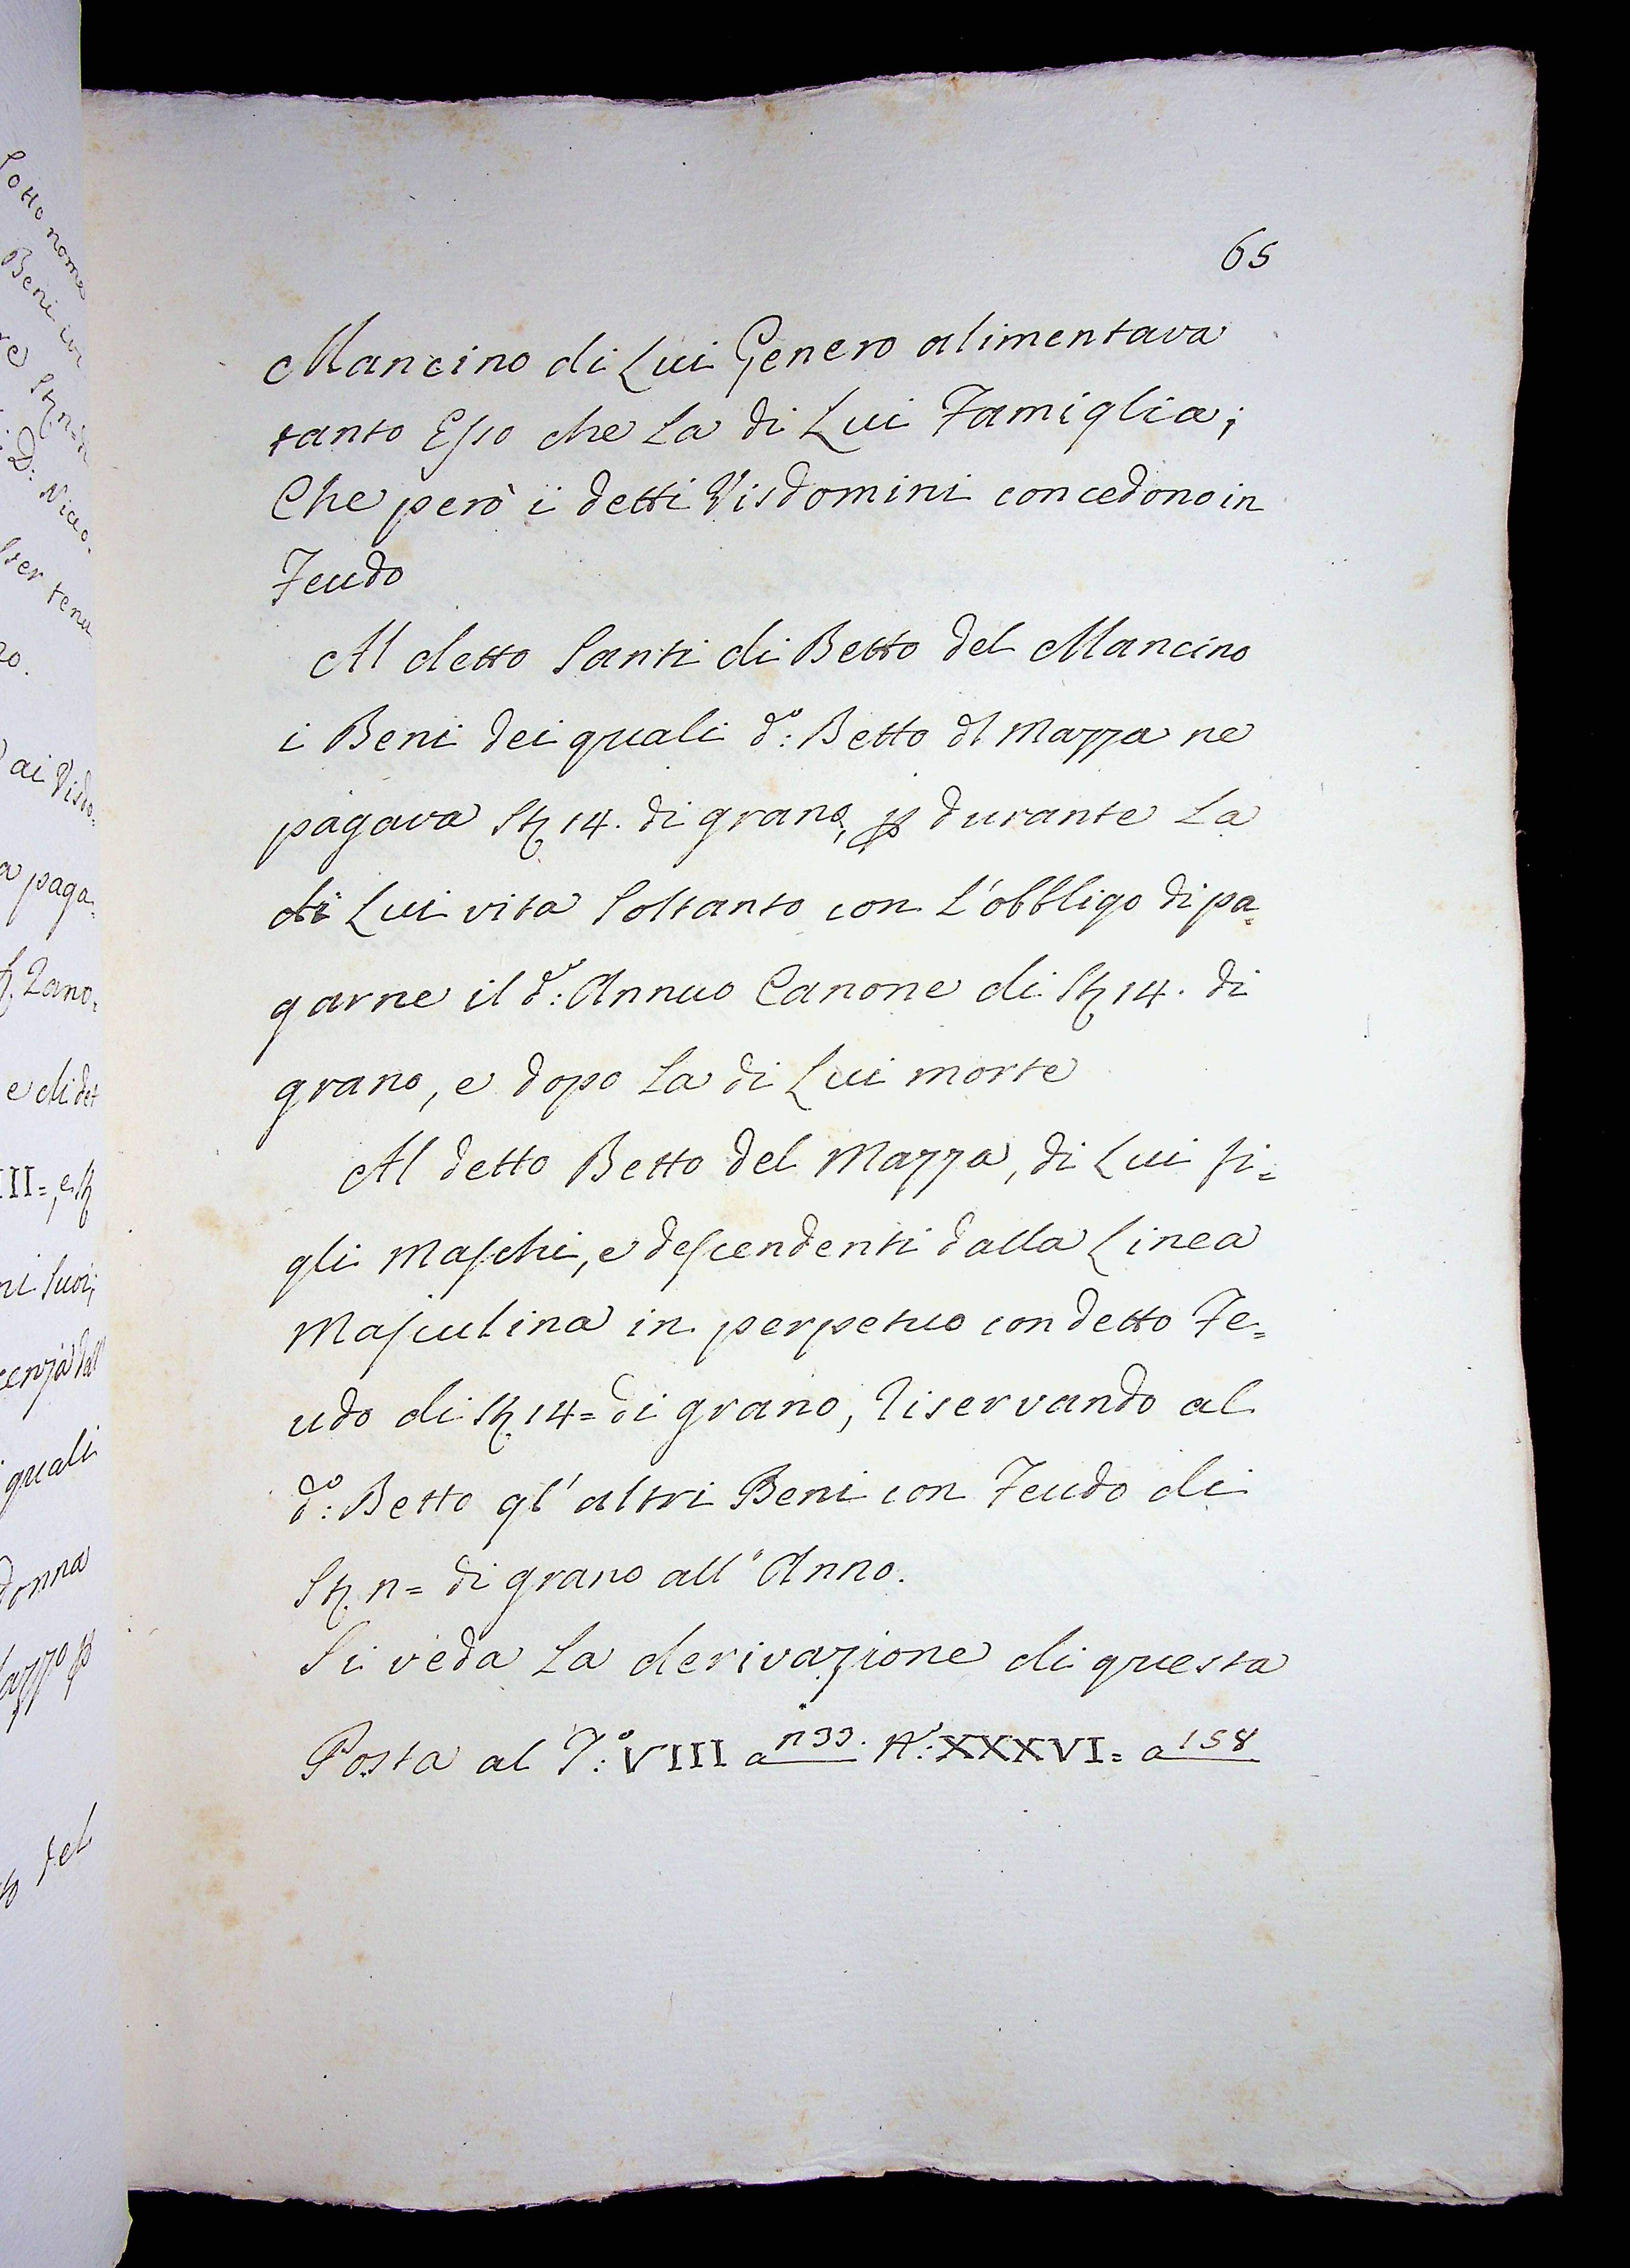 65
Mancino di Lui Genero alimentava
tanto Esso che La di Lui Famiglia;
Che però i detti Visdomini concedono in
Feudo
Al detto Santi di Betto del Mancino
i Beni dei quali d:º Betto dl Mazza ne
pagava St 14. di grano, p durante La
di Lui vita Soltanto con L'obbligo di pa=
garne il d:º Annuo Canone di St 14. di
grano, e dopo La di Lui morte
Al detto Betto del Mazza, di Lui fi=
gli Maschi, e descendenti dalla Linea
Masculina in perpetuo con detto Fe=
udo di St 14= di grano, riservando al
d:º Betto gl'altri Beni con Feudo di
St n= di grano all'Anno.
Si veda La derivazione di questa
Posta al T:º VIII a n 99. Nº: XXXVI= a 158
Sotto nome
Beni
D: Nicco=
ai Visdo=
paga=
Zano=
e di det
III=, e St
ni Suoi;
quali
donna
del